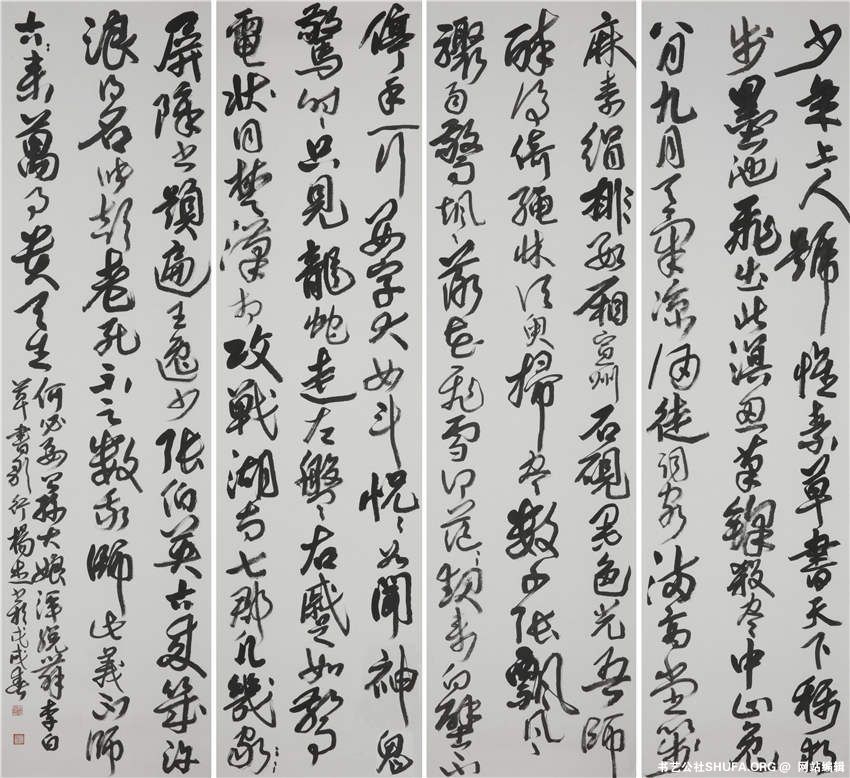 少年上人號懷素草書天下稱獨
步墨池飛出北溟魚筆鋒殺盡中山兔
八月九月天氣涼酒徒詞客滿高堂箋
麻素絹排數廂宣州石硯墨色光吾師
醉後倚繩床須臾掃盡數千張飄風
驟雨驚颯颯落花飛雪何茫茫起來向壁不
停手一行數字大如斗恍恍如聞神鬼
驚時時只見龍蛇走左盤右蹙如驚
電狀同楚漢相攻戰湖南七郡凡幾家家家
屏障書題遍王逸少張伯英古來幾許
浪得名張顛老死不足數我師此義不師
古古來萬事貴天生
何必要公孫大娘渾脫舞李白
草書歌行楊書於戊戌春
书艺公社SHUFA.ORG@ 网站编辑